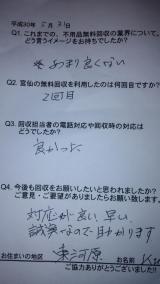 平成30年 5月31日
Q1. これまでの、不用品無料回収の業界について、
どう言うイメージをお持ちでしたか?
あまり良くない
Q2. 宮仙の無料回収を利用したのは何回目ですか?
2回目
Q3. 回収担当者の電話対応や回収時の対応は
どうでしたか?
良かった
Q4. 今後も回収をお願いしたいと思われましたか?
ご意見・ご要望がありましたらお願い致します。
対応が良い、早い、
誠実なので助かります
お住まいの地区 東河原 お名前
ご協力ありがとうございました!!